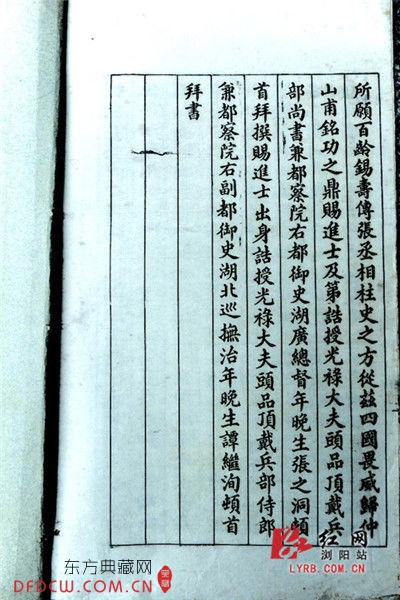 所願百齡錫壽傳張丞相柱史之方從茲四國畏威歸仲
山甫銘功之鼎賜進士及第誥授光祿大夫頭品頂戴兵
部尚書兼都察院右都御史湖廣總督年晚生張之洞頓
首拜撰賜進士出身誥授光祿大夫頭品頂戴兵部侍郎
兼都察院右副都御史湖北巡撫治年晚生譚繼洵頓首
拜書
东方典藏网
DFDCW.COM.CN
红网
浏阳站
LYRB.COM.CN